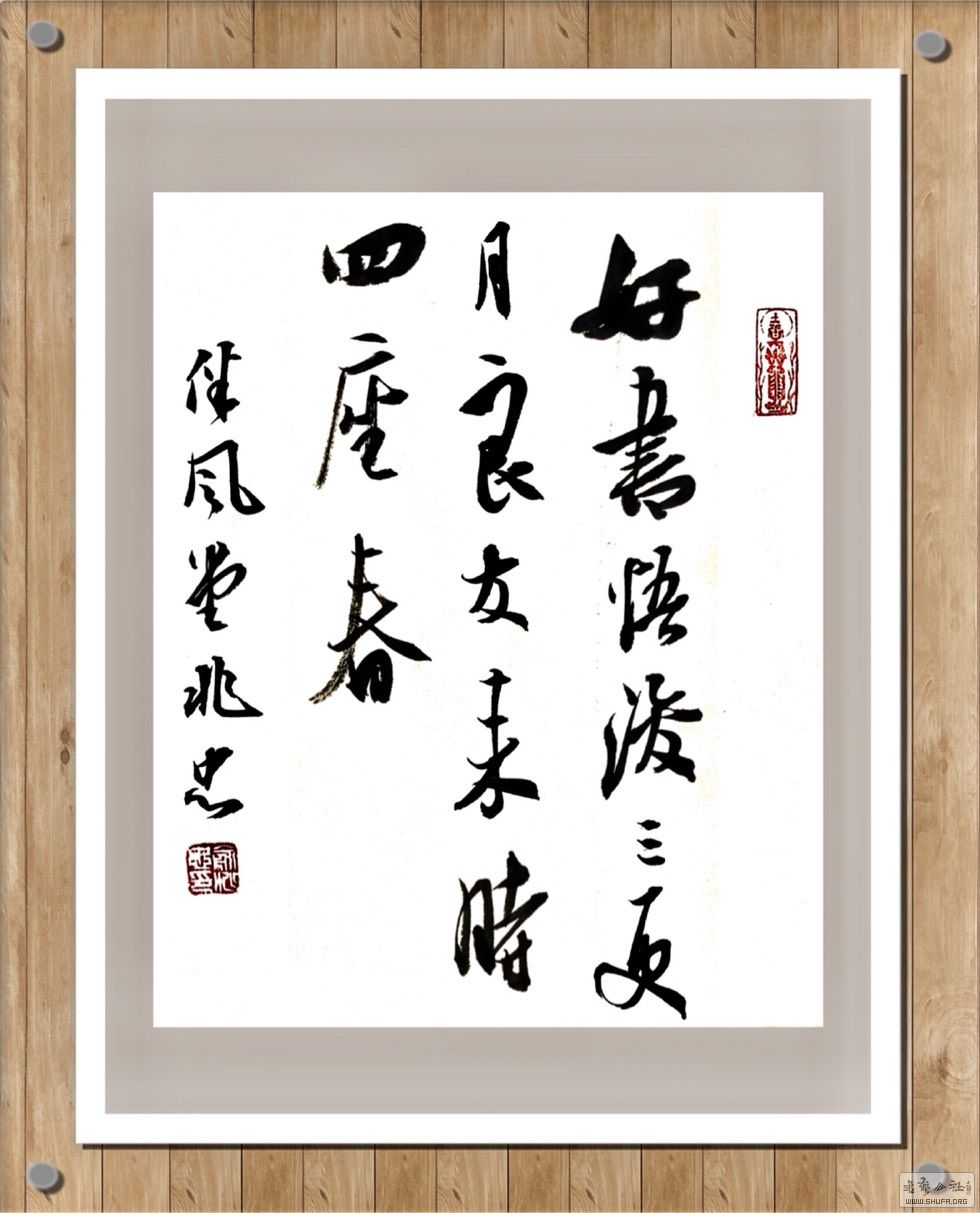 好書悟後三更
月良友来時
四座春
伴风堂兆忠
書藝公社
WWW.SHUFA.ORG